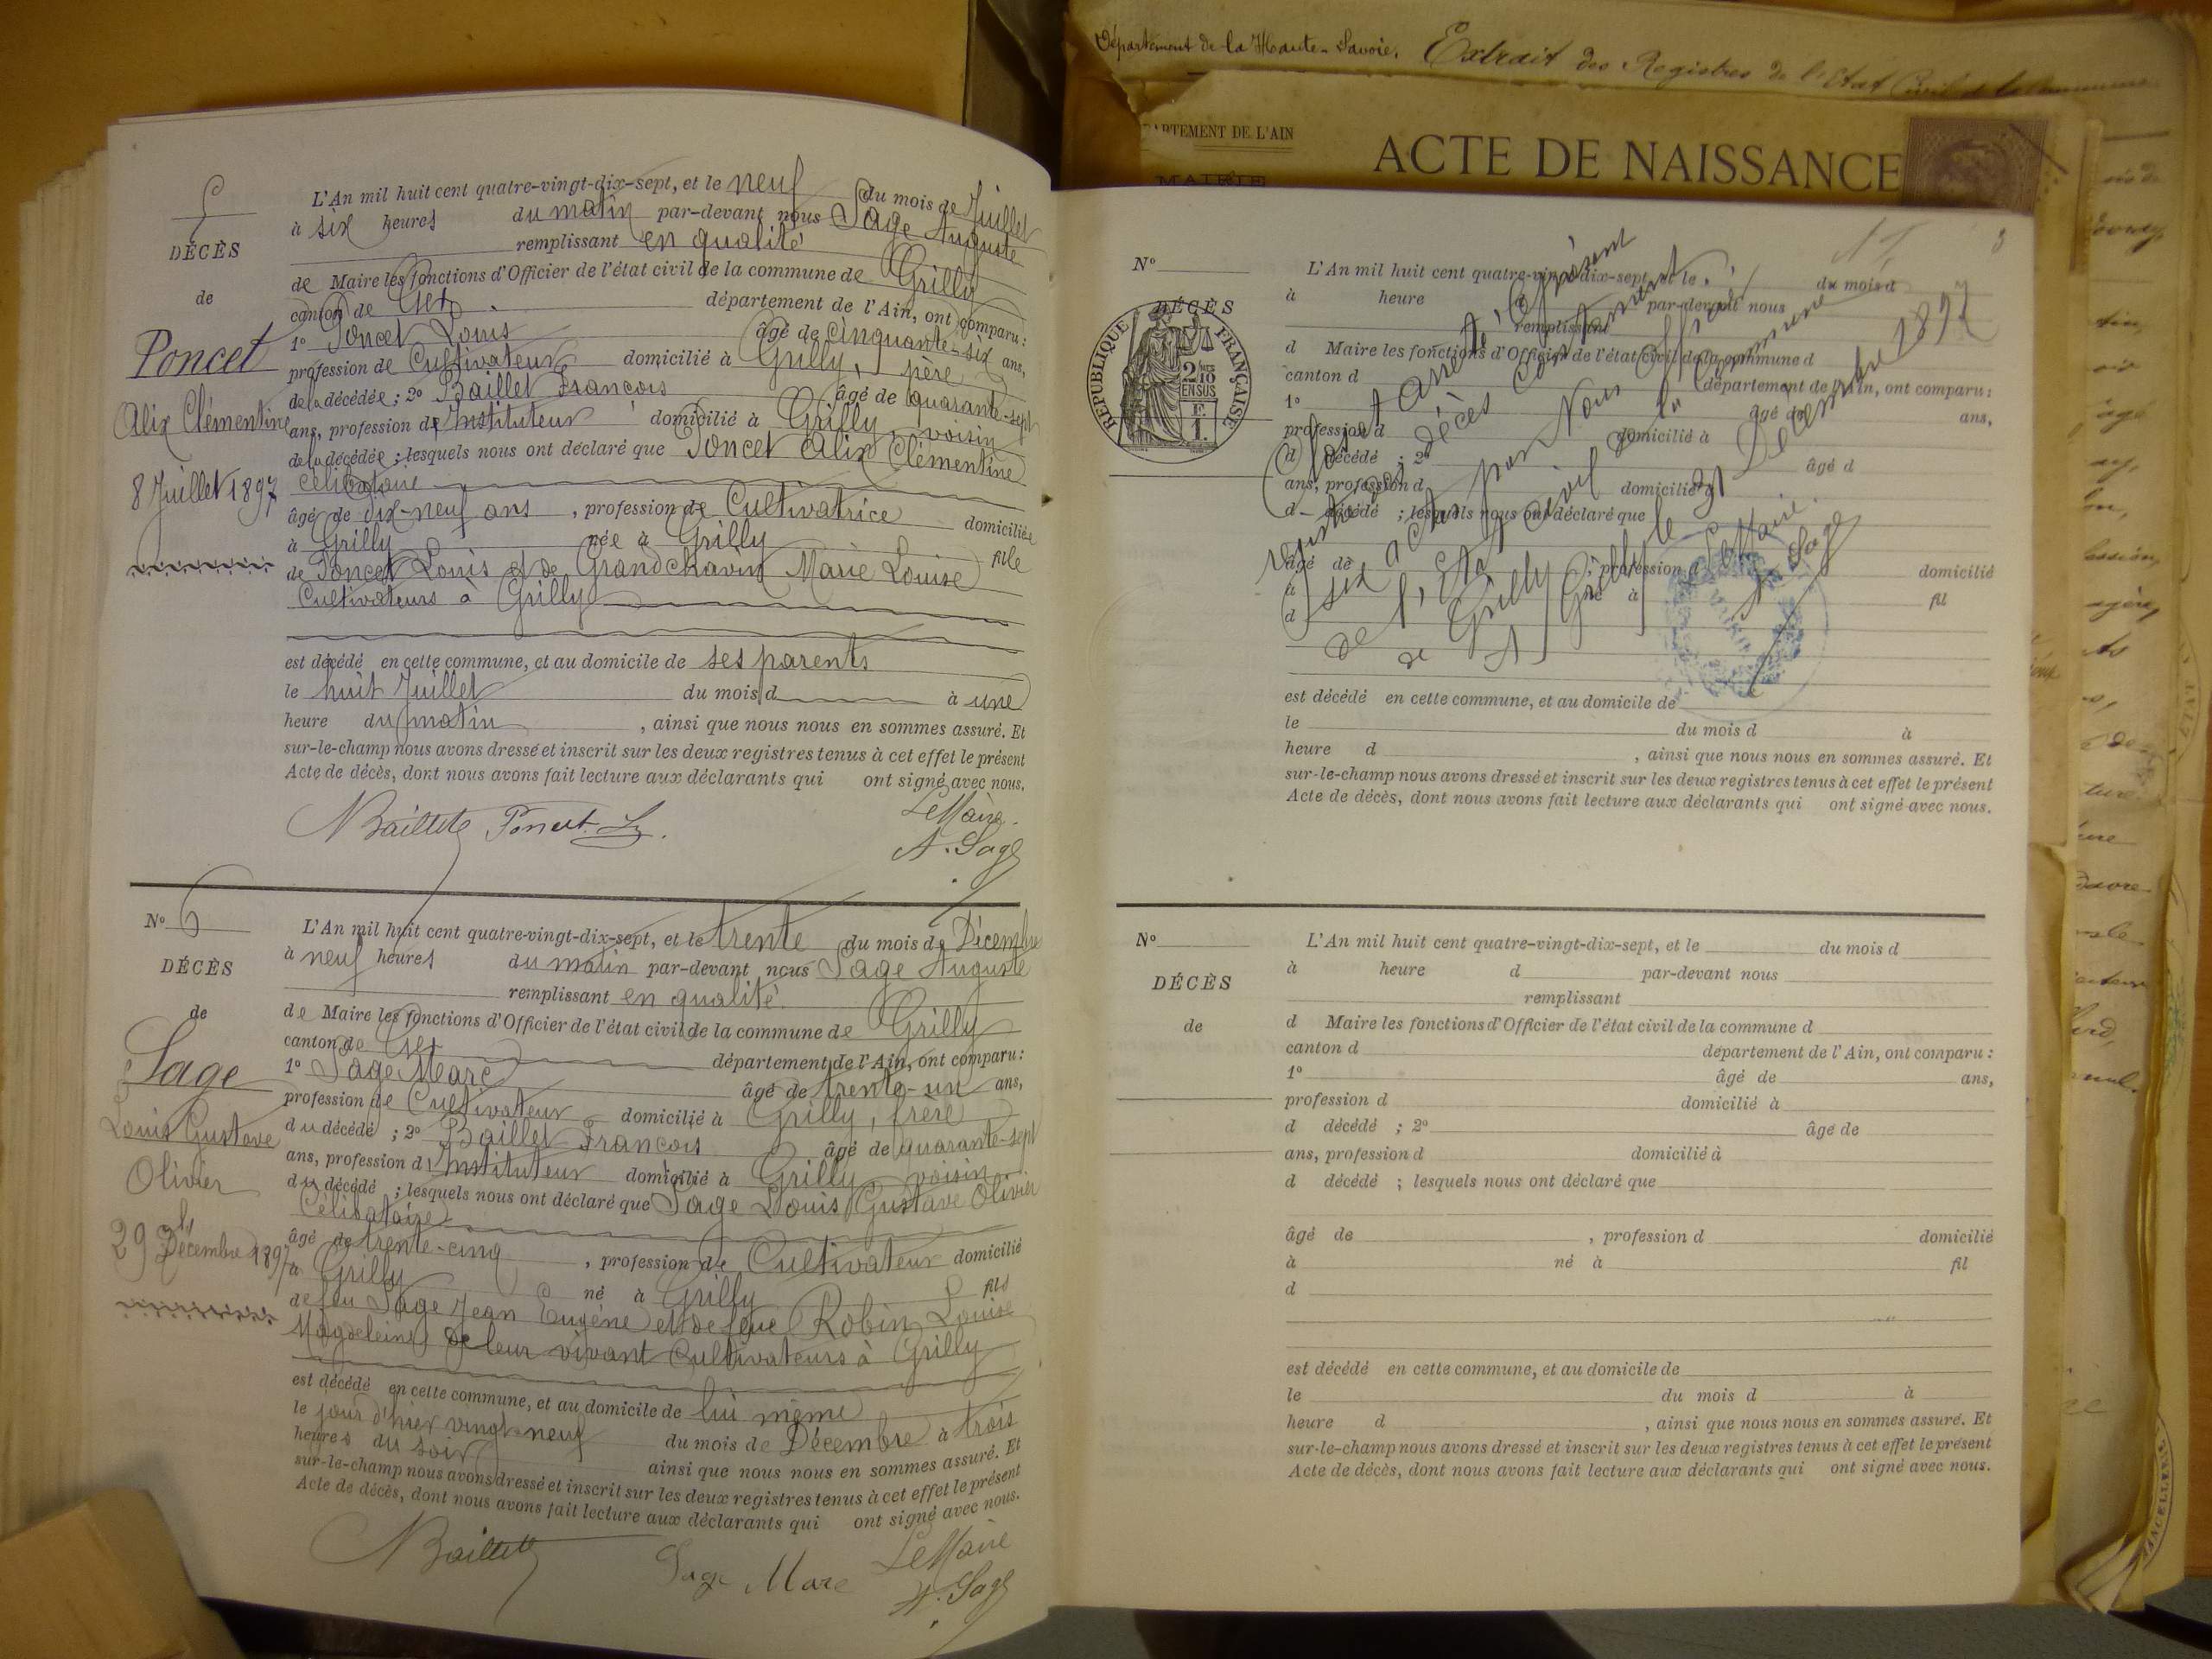 5
DÉCÈS
de
Poncet
Alix Clémentine
8 Juillet 1897
L'An mil huit cent quatre-vingt-dix-sept, et le neuf du mois de Juillet
à six heures du matin par-devant nous Sage Auguste
remplissant en qualité
de Maire les fonctions d'Officier de l'état civil de la commune de Grilly
canton de Gex département de l'Ain, ont comparu:
1º Poncet Louis âgé de cinquante-six ans,
profession de Cultivateur domicilié à Grilly, père
de la décédée; 2º Baillet François âgé de quarante-sept
ans, profession d'Instituteur domicilié à Grilly, voisin
de la décédée; lesquels nous ont déclaré que Poncet Alix Clémentine
Célibataire
âgé de dix-neuf ans, profession de Cultivatrice domiciliée
à Grilly née à Grilly fille
de Poncet Louis et de Grandchavin Marie Louise
Cultivateurs à Grilly
est décédé en cette commune, et au domicile de ses parents
le huit Juillet du mois d à une
heure du matin, ainsi que nous nous en sommes assuré. Et
sur-le-champ nous avons dressé et inscrit sur les deux registres tenus à cet effet le présent
Acte de décès, dont nous avons fait lecture aux déclarants qui ont signé avec nous.
Baillet Poncet L. Le Maire
A. Sage
Nº 6
DÉCÈS
de
Sage
Louis Gustave
Olivier
29 Xbre Décembre 1897
L'An mil huit cent quatre-vingt-dix-sept, et le trente du mois de Décembre
à neuf heures du matin par-devant nous Sage Auguste
remplissant en qualité
de Maire les fonctions d'Officier de l'état civil de la commune de Grilly
canton de Gex département de l'Ain, ont comparu:
1º Sage Marc âgé de trente-un ans,
profession de Cultivateur domicilié à Grilly, frère
du décédé; 2º Baillet François âgé de quarante-sept
ans, profession d'Instituteur domicilié à Grilly voisin
du décédé; lesquels nous ont déclaré que Sage Louis Gustave Olivier
Célibataire
âgé de trente-cinq, profession de Cultivateur domicilié
à Grilly né à Grilly fils
de feu Sage Jean Eugène et de feue Robin Louise
Magdeleine de leur vivant Cultivateurs à Grilly
est décédé en cette commune, et au domicile de lui même
le jour d'hier vingt-neuf du mois de Décembre à trois
heures du soir ainsi que nous nous en sommes assuré. Et
sur-le-champ nous avons dressé et inscrit sur les deux registres tenus à cet effet le présent
Acte de décès, dont nous avons fait lecture aux déclarants qui ont signé avec nous.
Baillet Sage Marc Le Maire
A. Sage
Département de la Haute-Savoie. Extrait des Registres de l'Etat Civil de la Commune
ARTEMENT DE L'AIN
MAIRIE
ACTE DE NAISSANCE
3
Nº
DÉCÈS
RÉPUBLIQUE FRANÇAISE
2/10 EN SUS
L'An mil huit cent quatre-vingt-dix-sept, et le du mois d
à heure d par-devant nous
remplissant
d Maire les fonctions d'Officier de l'état civil de la commune d
canton d département de l'Ain, ont comparu:
1º âgé de ans,
profession d domicilié à
d décédé; 2º âgé d
ans, profession d domicilié à
d décédé; lesquels nous ont déclaré que
âgé de, profession d domicilié
à né à fil
d
Clos et arrêté le présent
registre des décès contenant
six actes par Nous Officier
de l'Etat civil de la Commune
de Grilly
A Grilly le 31 Décembre 1897
Le Maire
A. Sage
est décédé en cette commune, et au domicile de
le du mois d à
heure d, ainsi que nous nous en sommes assuré. Et
sur-le-champ nous avons dressé et inscrit sur les deux registres tenus à cet effet le présent
Acte de décès, dont nous avons fait lecture aux déclarants qui ont signé avec nous.
Nº
DÉCÈS
de
L'An mil huit cent quatre-vingt-dix-sept, et le du mois d
à heure d par-devant nous
remplissant
d Maire les fonctions d'Officier de l'état civil de la commune d
canton d département de l'Ain, ont comparu:
1º âgé de ans,
profession d domicilié à
d décédé; 2º âgé de
ans, profession d domicilié à
d décédé; lesquels nous ont déclaré que
âgé de, profession d domicilié
à né à fil
d
est décédé en cette commune, et au domicile de
le du mois d à
heure d, ainsi que nous nous en sommes assuré. Et
sur-le-champ nous avons dressé et inscrit sur les deux registres tenus à cet effet le présent
Acte de décès, dont nous avons fait lecture aux déclarants qui ont signé avec nous.